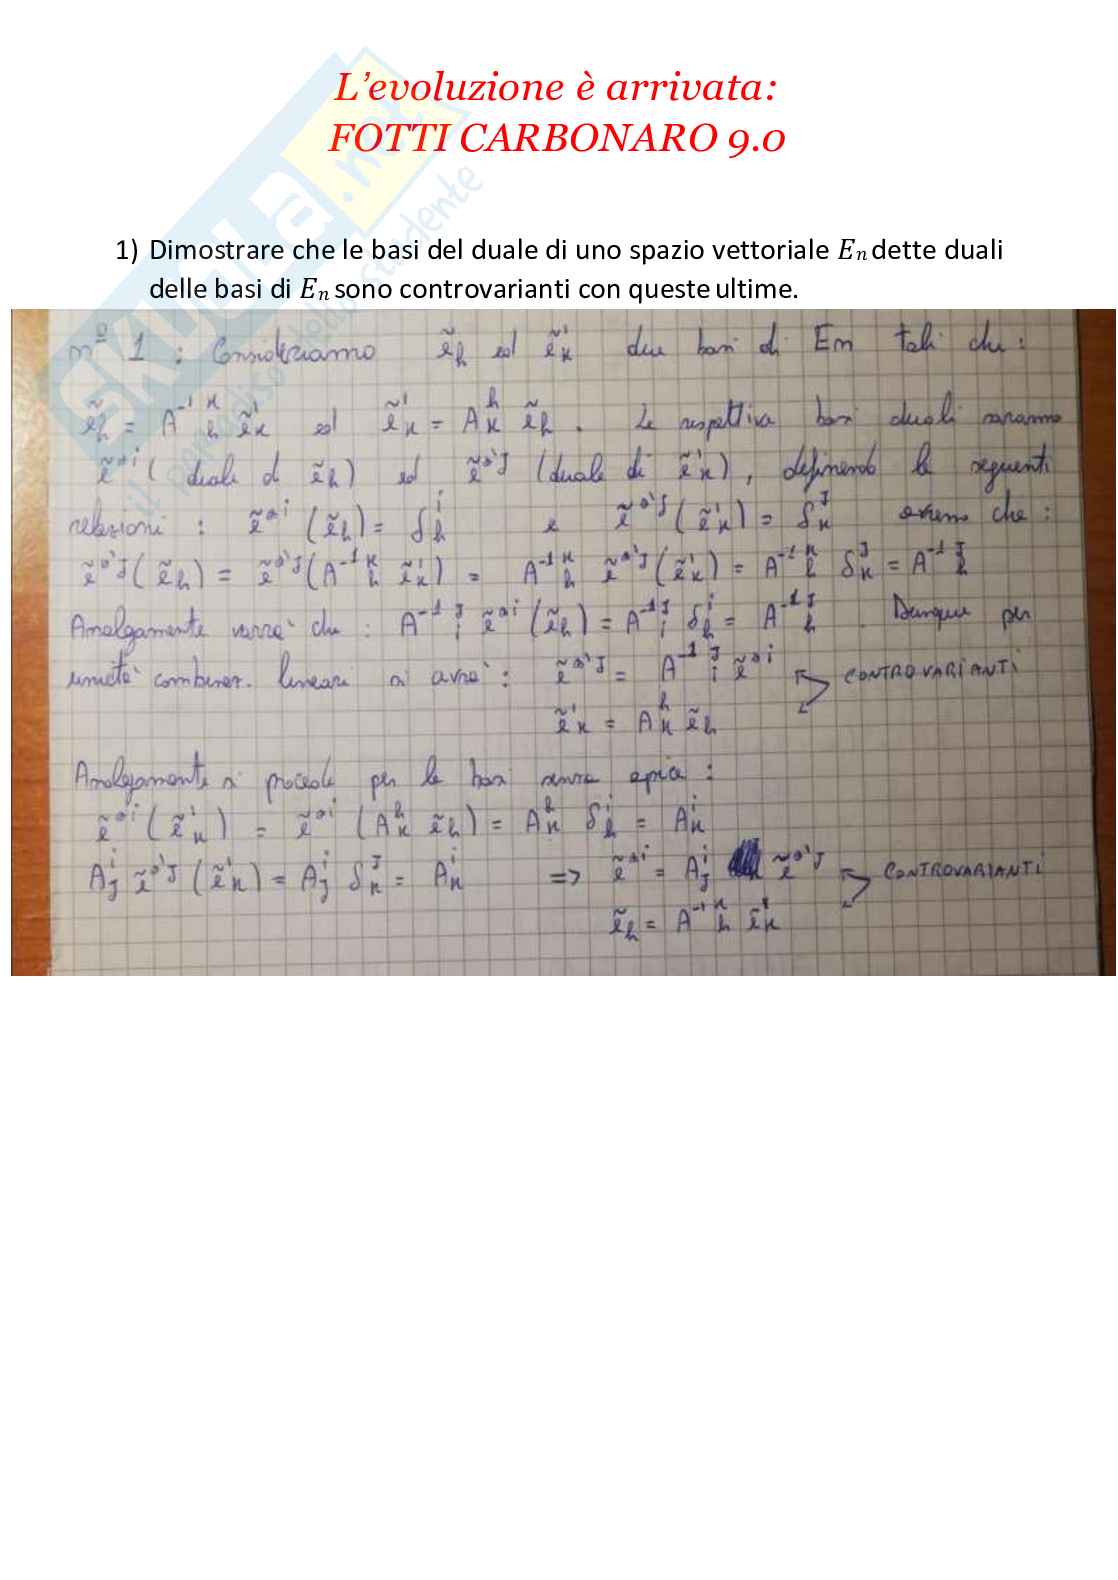 L'evoluzione è arrivata:
FOTTI CARBONARO 9.0
1) Dimostrare che le basi del duale di uno spazio vettoriale Eₙ dette duali
delle basi di Eₙ sono controvarianti con queste ultime.
nº 1 : Consideriamo ẽ_h ed ẽ'_k due basi di En tali che :
ẽ_h = A^{-1}{}^k_h ẽ'_k ed ẽ'_k = A^h_k ẽ_h . Le rispettive basi duali saranno
ẽ^{*i} ( duale d ẽ_h) ed ẽ^{*'J} (duale di ẽ'_k) , definendo le seguenti
relazioni : ẽ^{*i} (ẽ_h) = δ^i_h e ẽ^{*'J} (ẽ'_k) = δ^J_k avremo che :
ẽ^{*'J} (ẽ_h) = ẽ^{*'J} (A^{-1}{}^k_h ẽ'_k) = A^{-1}{}^k_h ẽ^{*'J} (ẽ'_k) = A^{-1}{}^k_h δ^J_k = A^{-1}{}^J_h
Analogamente varrà che : A^{-1}{}^J_i ẽ^{*i} (ẽ_h) = A^{-1}{}^J_i δ^i_h = A^{-1}{}^J_h . Dunque per
unicità combinaz. lineari si avrà : ẽ^{*'J} = A^{-1}{}^J_i ẽ^{*i} CONTROVARIANTI
ẽ'_k = A^h_k ẽ_h
Analogamente si procede per le basi senza apice :
ẽ^{*i} (ẽ'_k) = ẽ^{*i} (A^h_k ẽ_h) = A^h_k δ^i_h = A^i_k
A^i_j ẽ^{*'J} (ẽ'_k) = A^i_j δ^J_k = A^i_k => ẽ^{*i} = A^i_j ẽ^{*'J} CONTROVARIANTI
ẽ_h = A^{-1}{}^k_h ẽ'_k
skuola.net
il paradiso dello studente